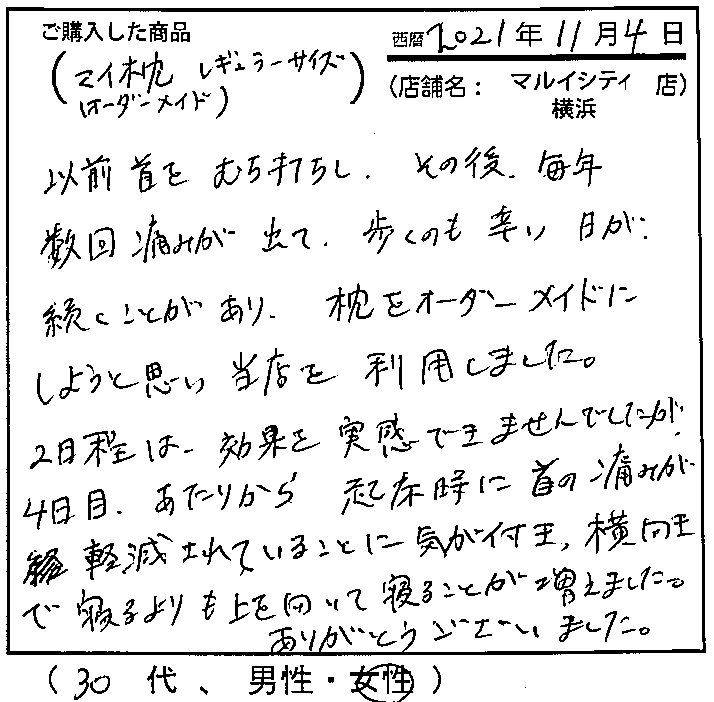 ご購入した商品
西暦 2021年 11月 4日
(マイ枕 レギュラーサイズ
(オーダーメイド) )
(店舗名: マルイシティ 店)
横浜
以前首をむち打ちし、その後、毎年
数回痛みが出て、歩くのも辛い日が、
続くことがあり、枕をオーダーメイドに
しようと思い当店を利用しました。
2日程は、効果を実感できませんでしたが、
4日目、あたりから起床時に首の痛みが
軽減されていることに気が付き、横向き
で寝るよりも上を向いて寝ることが増えました。
ありがとうございました。
(30代、男性・女性)